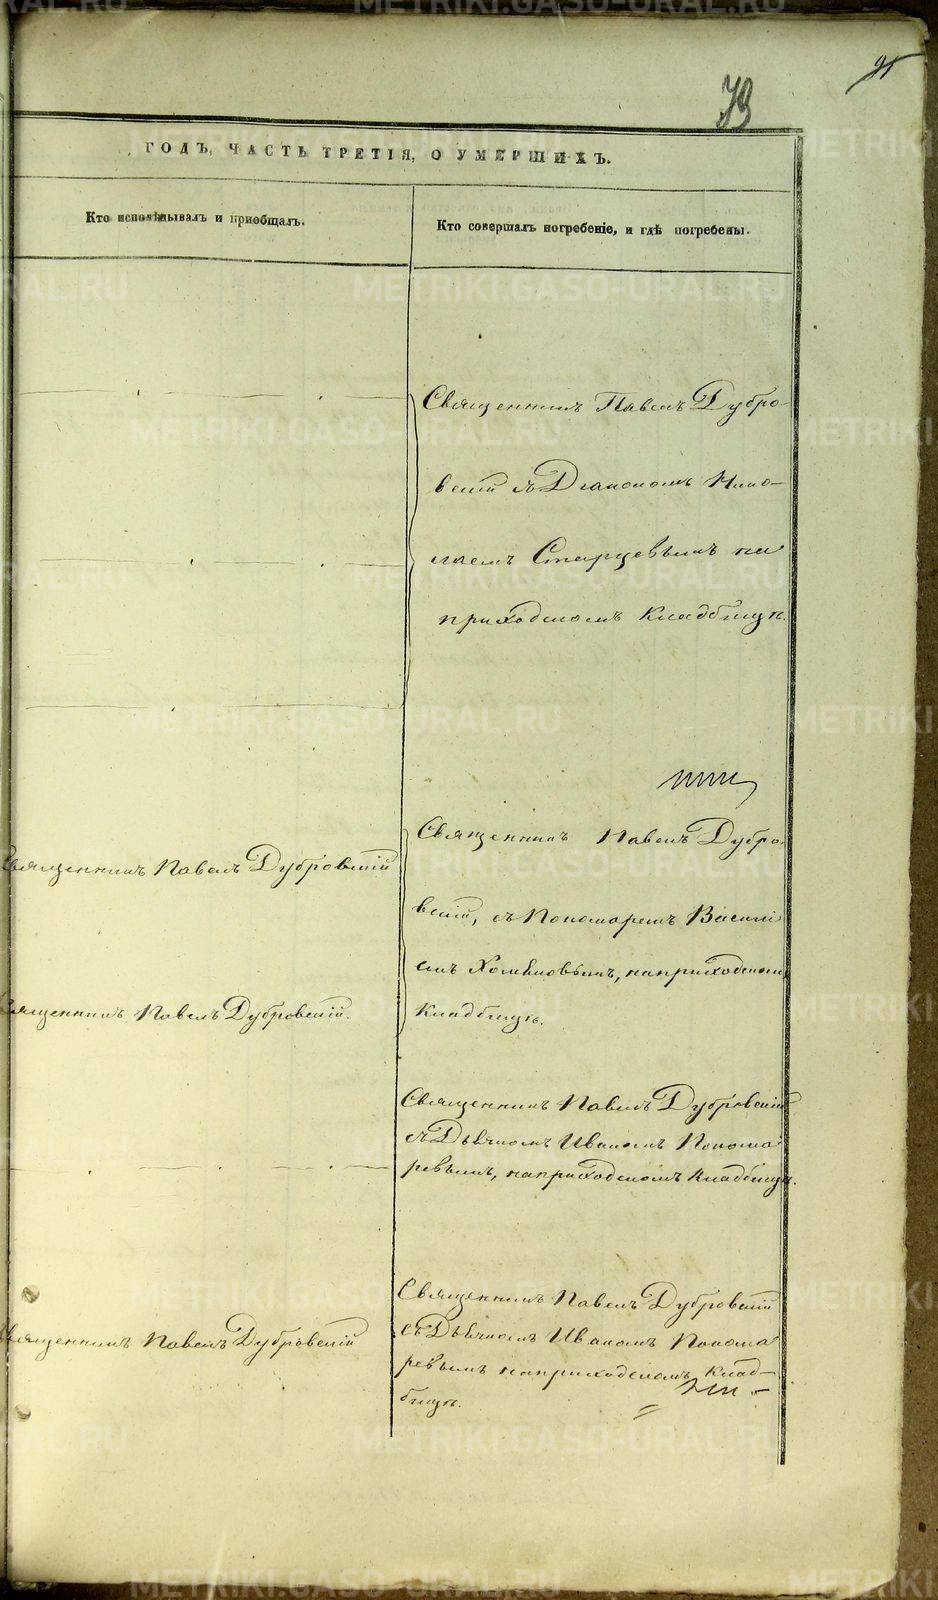 91
79
ГОДЪ, ЧАСТЬ ТРЕТІЯ, О УМЕРШИХЪ.
Кто исповѣдывалъ и приобщалъ.
Кто совершалъ погребеніе, и гдѣ погребены.
Священникъ Павелъ Дубро-
вскій съ Діакономъ Нико-
лаемъ Старцевымъ на
приходскомъ Кладбищѣ.
Священникъ Павелъ Дубровскій
Священникъ Павелъ Дубро-
вскій, съ Пономаремъ Василі
емъ Хомяковымъ, на приходскомъ
Кладбищѣ.
Священникъ Павелъ Дубровскій.
Священникъ Павелъ Дубровскій
съ Дьячкомъ Иваномъ Понома
ревымъ, на приходскомъ Кладбищѣ.
Священникъ Павелъ Дубровскій
Священникъ Павелъ Дубровскій
съ Дьячкомъ Иваномъ Понома
ревымъ на приходскомъ Клад-
бищѣ.
METRIKI.GASO-URAL.RU